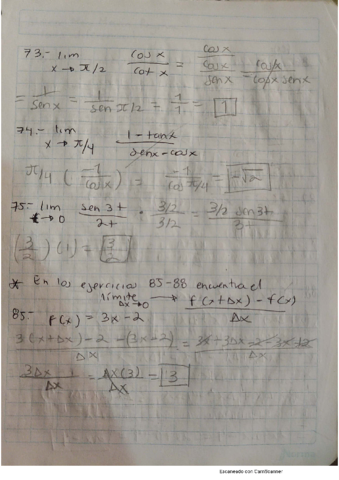 73.- lim x→π/2 cos x / cot x = cos x / (cos x / sen x) = cos x / cos x sen x
= 1/sen x = 1/sen π/2 = 1/1 = 1
74.- lim x→π/4 1 - tan x / sen x - cos x
π/4 ( -1 / cos x ) = -1 / cos π/4 = -√2
75.- lim t→0 sen 3t / 2t · 3/2 / 3/2 = 3/2 sen 3t / 3t
(3/2) (1) = 3/2
* En los ejercicios 85-88 encuentra el
límite Δx→0 → f(x+Δx) - f(x) / Δx
85.- f(x) = 3x - 2
3(x+Δx) - 2 - (3x-2) / Δx = 3x + 3Δx - 2 - 3x + 2 / Δx
3Δx / Δx = Δx(3) / Δx = 3
Escaneado con CamScanner